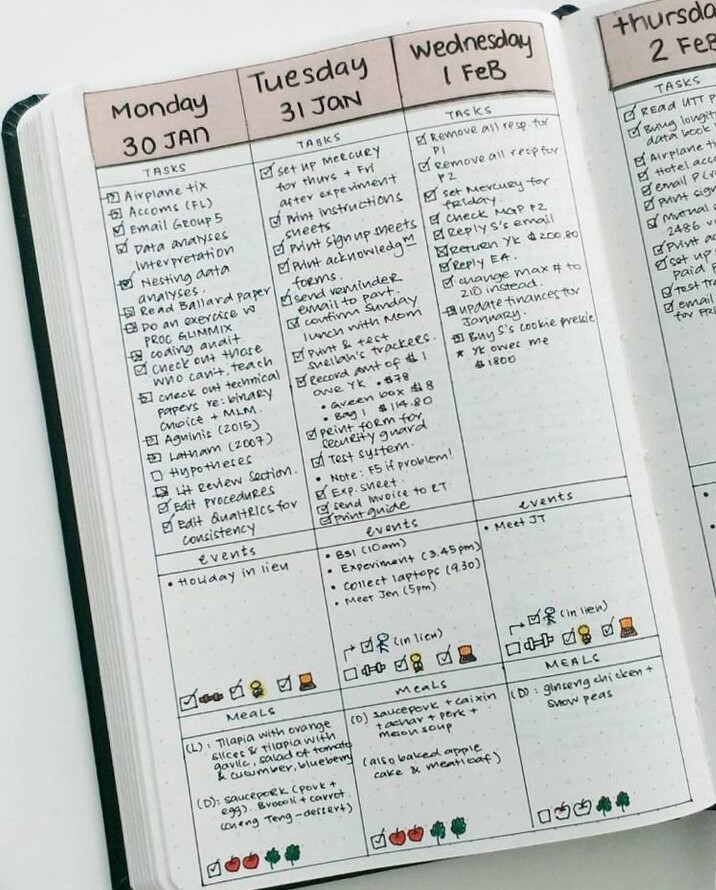 Monday
30 JAN
TASKS
Airplane tix
Accoms (FL)
Email Group 5
Data analyses
Interpretation
Nesting data
analyses.
Read Ballard paper
Do an exercise w
PROC GLIMMIX
coding audit.
Check out those
who can't, teach
Check out technical
papers re: binary
choice + MLM.
Aguinis (2015)
Latham (2007)
Hypotheses
Lit Review Section.
Edit Procedures
Edit Qualtrics for
consistency
events
• Holiday in lieu
Meals
(L): Tilapia with orange
slices & tilapia with
garlic, salad of tomato
& cucumber, blueberry
(D): saucepork (pork +
egg). Brocoli + carrot
(cheng Teng-dessert)
Tuesday
31 JAN
TASKS
Set up MERCURY
for thurs + Fri
after experiment
Print instructions
sheets
Print sign up sheets
Print acknowledgm
forms.
Send reminder
email to part.
confirm Sunday
lunch with Mom
Print & test
sheilah's trackers.
Record amt of $ I
owe YK • $78
• Green box $8
• Bag 1 $114.80
print form for
security guard
Test system.
• Note: F5 if problem!
Exp. sheet
send invoice to RT.
Print guide
events
• BSI (10am)
• Experiment (3.45pm)
• Collect laptops (9.30)
• Meet Jen (5pm)
(in lieu)
Meals
(D) saucepork + caixin
+ achar + pork +
melon soup
(also baked apple
cake & meatloaf)
Wednesday
1 FEB
TASKS
Remove all resp for
P1
Remove all resp for
P2
Set Mercury for
friday.
Check MGP P2
Reply S's email
Return YK $200.80
Reply EA.
change max # to
210 instead.
update finances for
January.
Buy S's cookie pressie
* YK owes me
$1800
events
• Meet JT
(in lieu)
MEALS
(D): ginseng chicken +
snow peas
thursda
2 FEB
TASKS
READ UTT P
Bring longit
data book
Airplane ti
Hotel acc
email PCr
Print sign
Mutual
2486 v
Print ac
Set up
paid
Test tra
email
for FRI